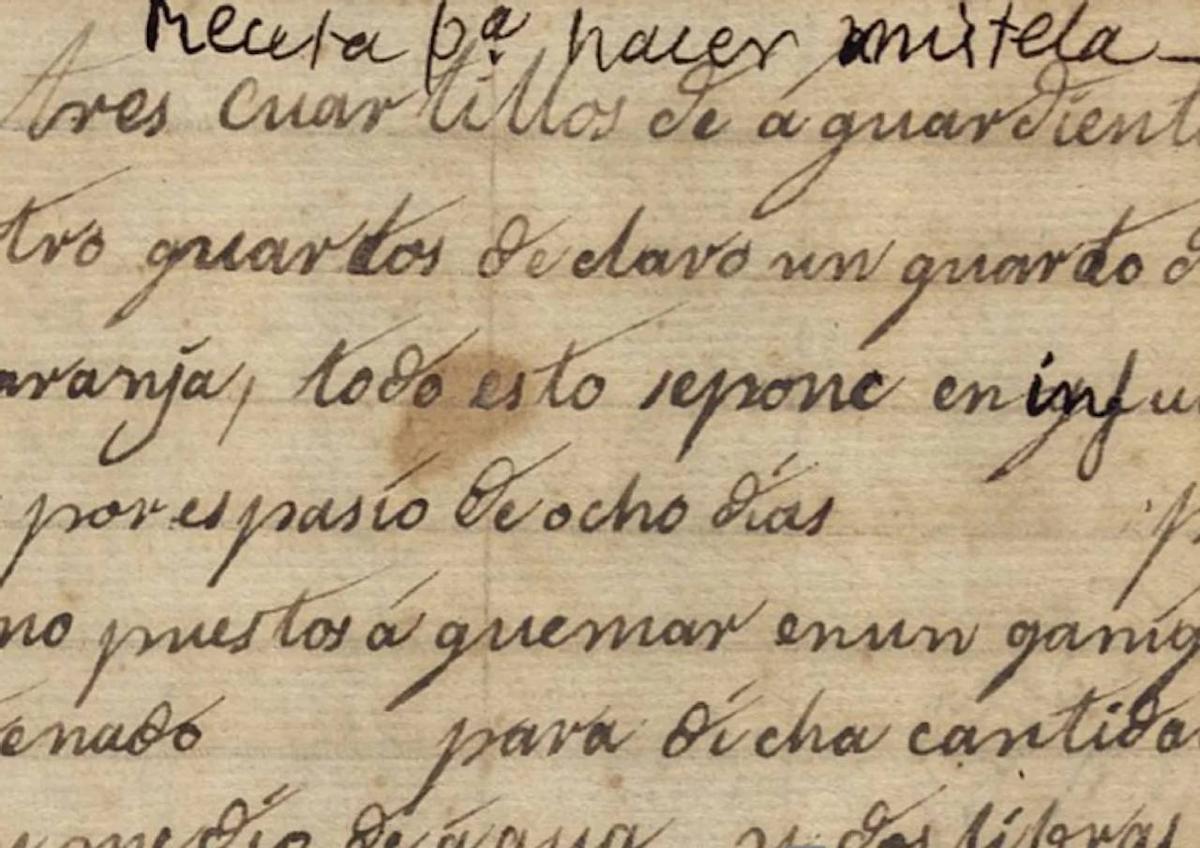 Receta pª hacer mistela
tres cuartillos de aguardient
tro quartos de clavo un quarto d
aranja, todo esto sepone en infu
por espasio de ocho días
no puestos á quemar enun ganig
enado para dicha cantida
medio de agua y dos libras